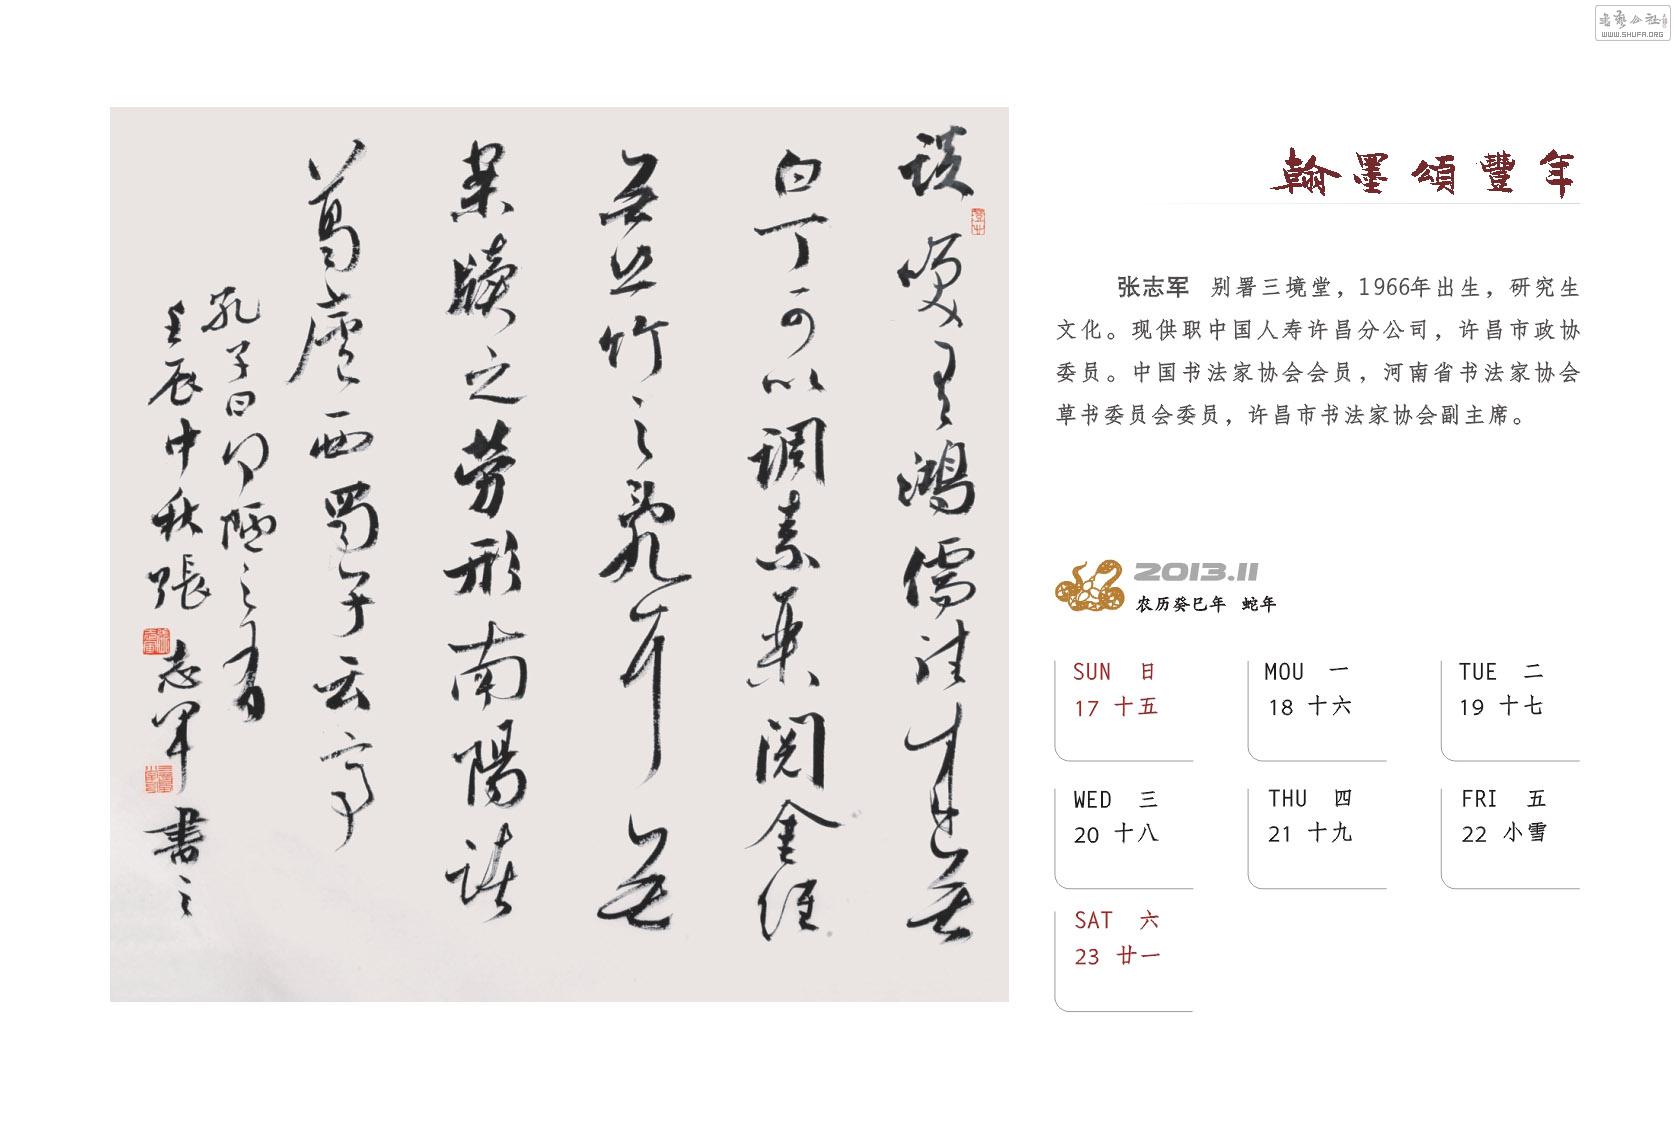 談咲有鴻儒往來無
白丁可以調素琴閱金經
無丝竹之亂耳無
案牘之勞形南陽諸
葛廬西蜀子云亭
孔子曰何陋之有
壬辰中秋張志軍書之
書藝公社
WWW.SHUFA.ORG
翰墨頌豐年
张志军 别署三境堂，1966年出生，研究生
文化。现供职中国人寿许昌分公司，许昌市政协
委员。中国书法家协会会员，河南省书法家协会
草书委员会委员，许昌市书法家协会副主席。
2013.11
农历癸巳年 蛇年
SUN 日
17 十五
MOU 一
18 十六
TUE 二
19 十七
WED 三
20 十八
THU 四
21 十九
FRI 五
22 小雪
SAT 六
23 廿一